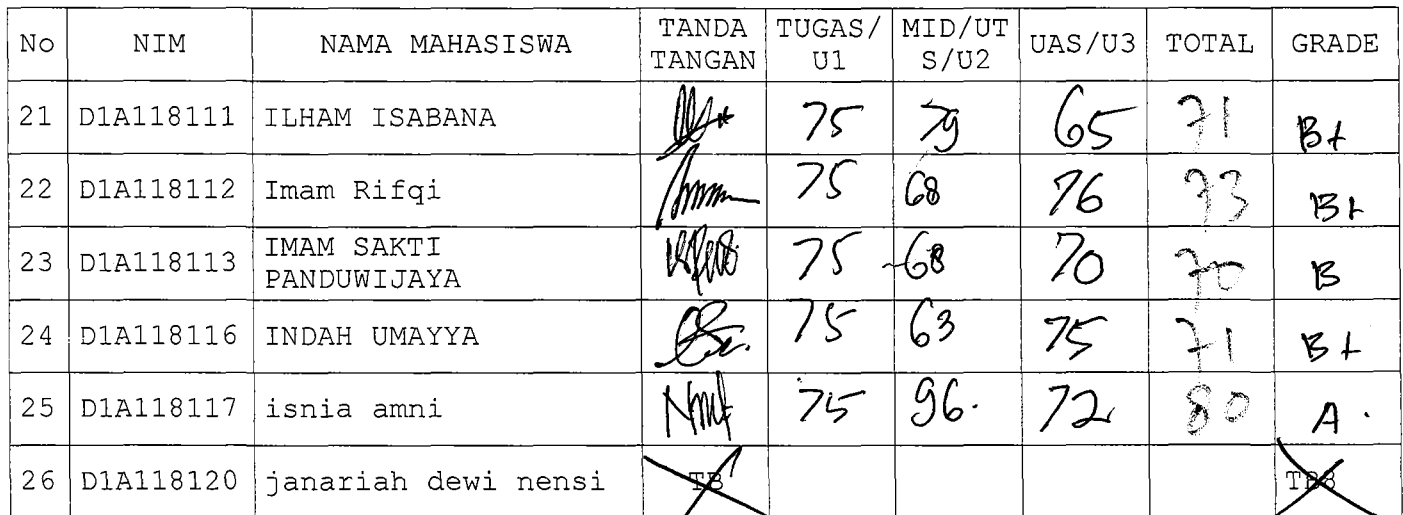 No NIM NAMA MAHASISWA TANDA TANGAN TUGAS/ U1 MID/UT S/U2 UAS/U3 TOTAL GRADE
21 D1A118111 ILHAM ISABANA 75 79 65 71 B+
22 D1A118112 Imam Rifqi 75 68 76 73 B+
23 D1A118113 IMAM SAKTI PANDUWIJAYA 75 68 70 70 B
24 D1A118116 INDAH UMAYYA 75 63 75 71 B+
25 D1A118117 isnia amni 75 96. 72 80 A.
26 D1A118120 janariah dewi nensi TB